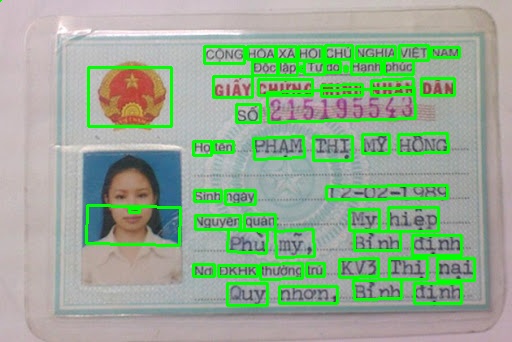 CỘNG HÒA XÃ HỘI CHỦ NGHĨA VIỆT NAM
Độc lập - Tự do - Hạnh phúc
GIẤY CHỨNG MINH NHÂN DÂN
SỐ 215195543
Họ tên PHẠM THỊ MỸ HỒNG
Sinh ngày 12-02-1989
Nguyên quán Mỹ hiệp
Phù mỹ, Bình định
Nơi ĐKHK thường trú KV3 Thị nại
Quy nhơn, Bình định